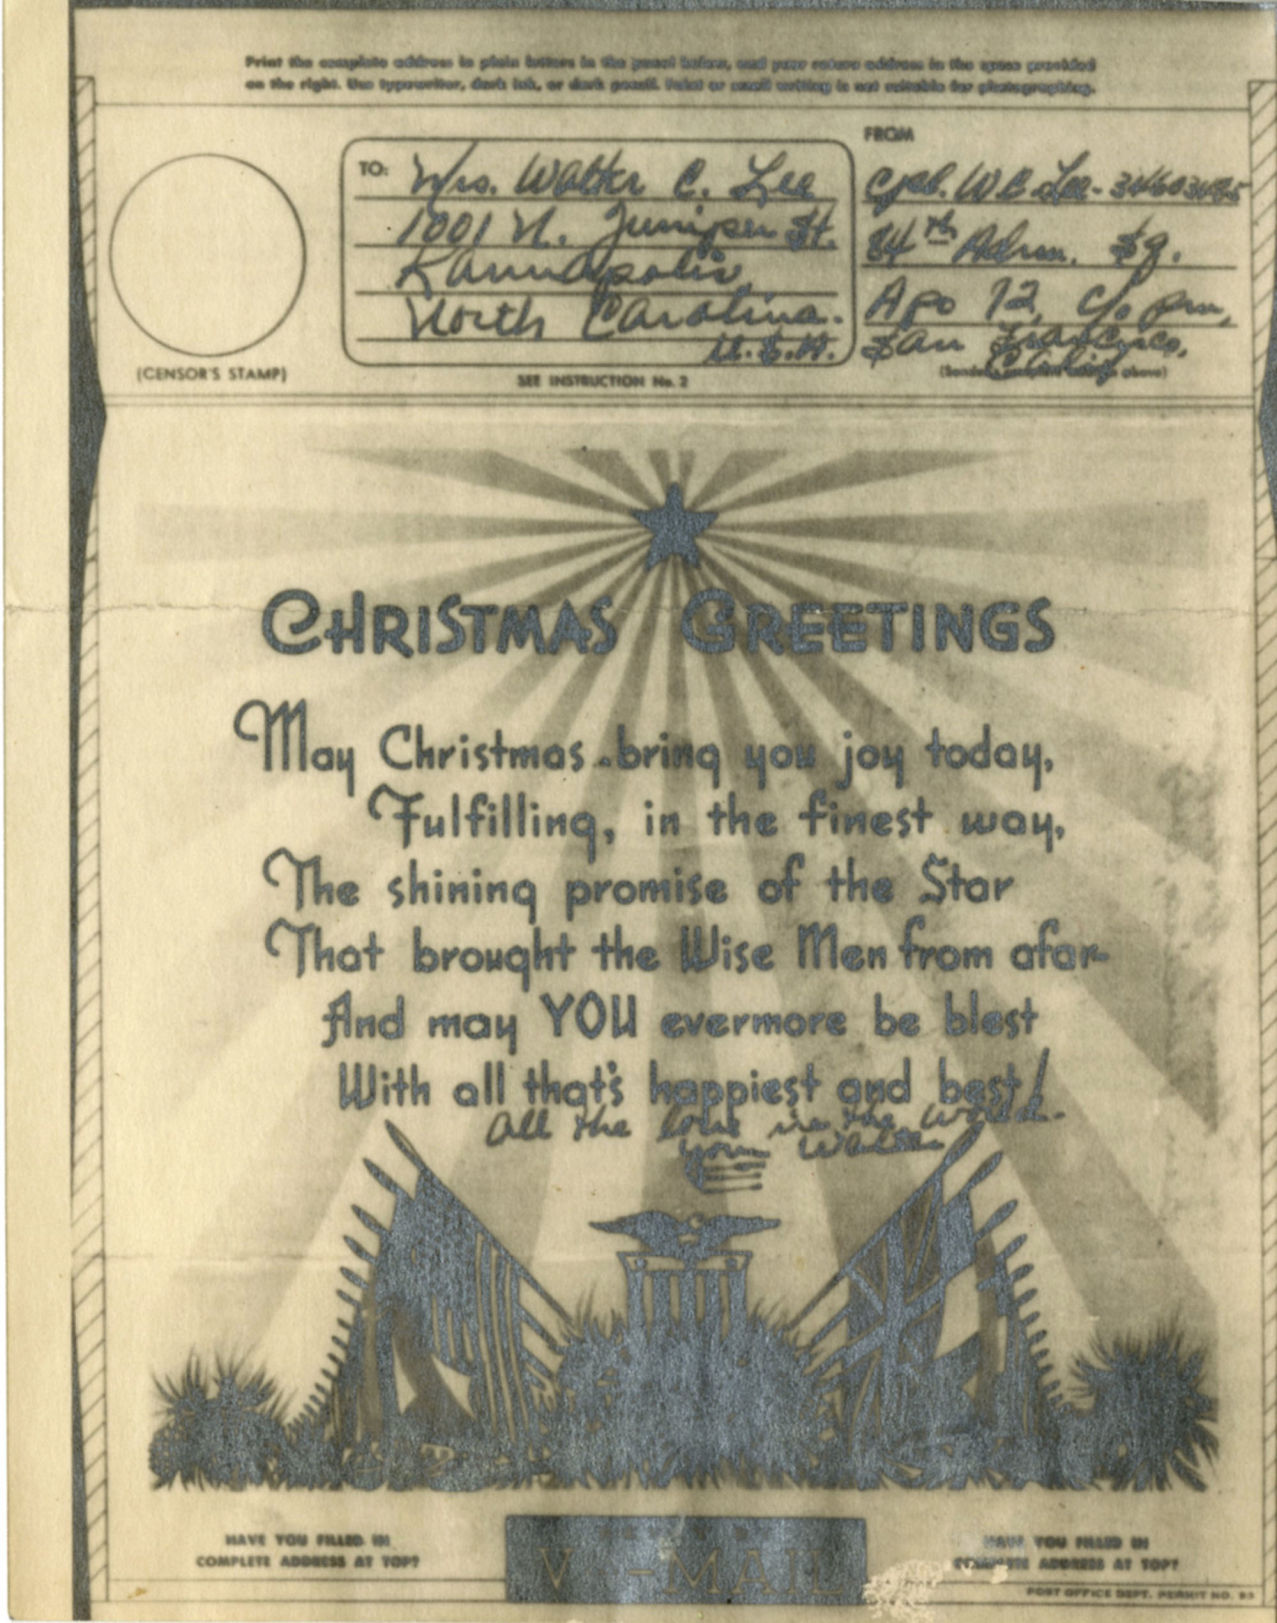 Print the complete address in plain letters in the panel below, and your return address in the space provided
on the right. Use typewriter, dark ink, or dark pencil. Faint or small writing is not suitable for photographing.
FROM
TO: Mrs. Walter C. Lee
1001 N. Juniper St.
Kannapolis,
North Carolina.
U.S.A.
Cpl. W C Lee -
34th Adrm. Sq.
Apo 72, c/o pm,
San Francisco,
Calif
(CENSOR'S STAMP)
SEE INSTRUCTION No. 2
(Sender's complete address above)
CHRISTMAS GREETINGS
May Christmas bring you joy today,
Fulfilling, in the finest way,
The shining promise of the Star
That brought the Wise Men from afar-
And may YOU evermore be blest
With all that's happiest and best!
All the love in the world.
Your Walter
HAVE YOU FILLED IN
COMPLETE ADDRESS AT TOP?
V-MAIL
HAVE YOU FILLED IN
COMPLETE ADDRESS AT TOP?
POST OFFICE DEPT. PERMIT NO.